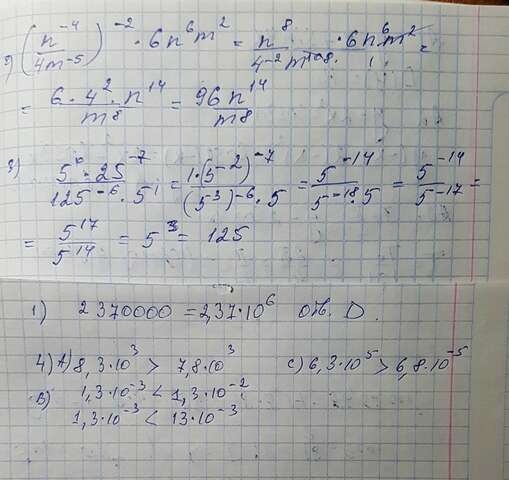 2) (n⁻⁴/4m⁻⁵)⁻² · 6n⁶m² = n⁸/4⁻²m¹⁰ · 6n⁶m² =
= 6·4²·n¹⁴/m⁸ = 96n¹⁴/m⁸
3) 5⁰·25⁻⁷/125⁻⁶·5¹ = 1·(5⁻²)⁻⁷/(5³)⁻⁶·5 = 5⁻¹⁴/5⁻¹⁸·5 = 5⁻¹⁴/5⁻¹⁷ =
= 5¹⁷/5¹⁴ = 5³ = 125
1) 2370000 = 2,37·10⁶ отв. D.
4) A) 8,3·10³ > 7,8·10³ C) 6,3·10⁵ > 6,8·10⁻⁵
B) 1,3·10⁻³ < 1,3·10⁻²
1,3·10⁻³ < 13·10⁻³